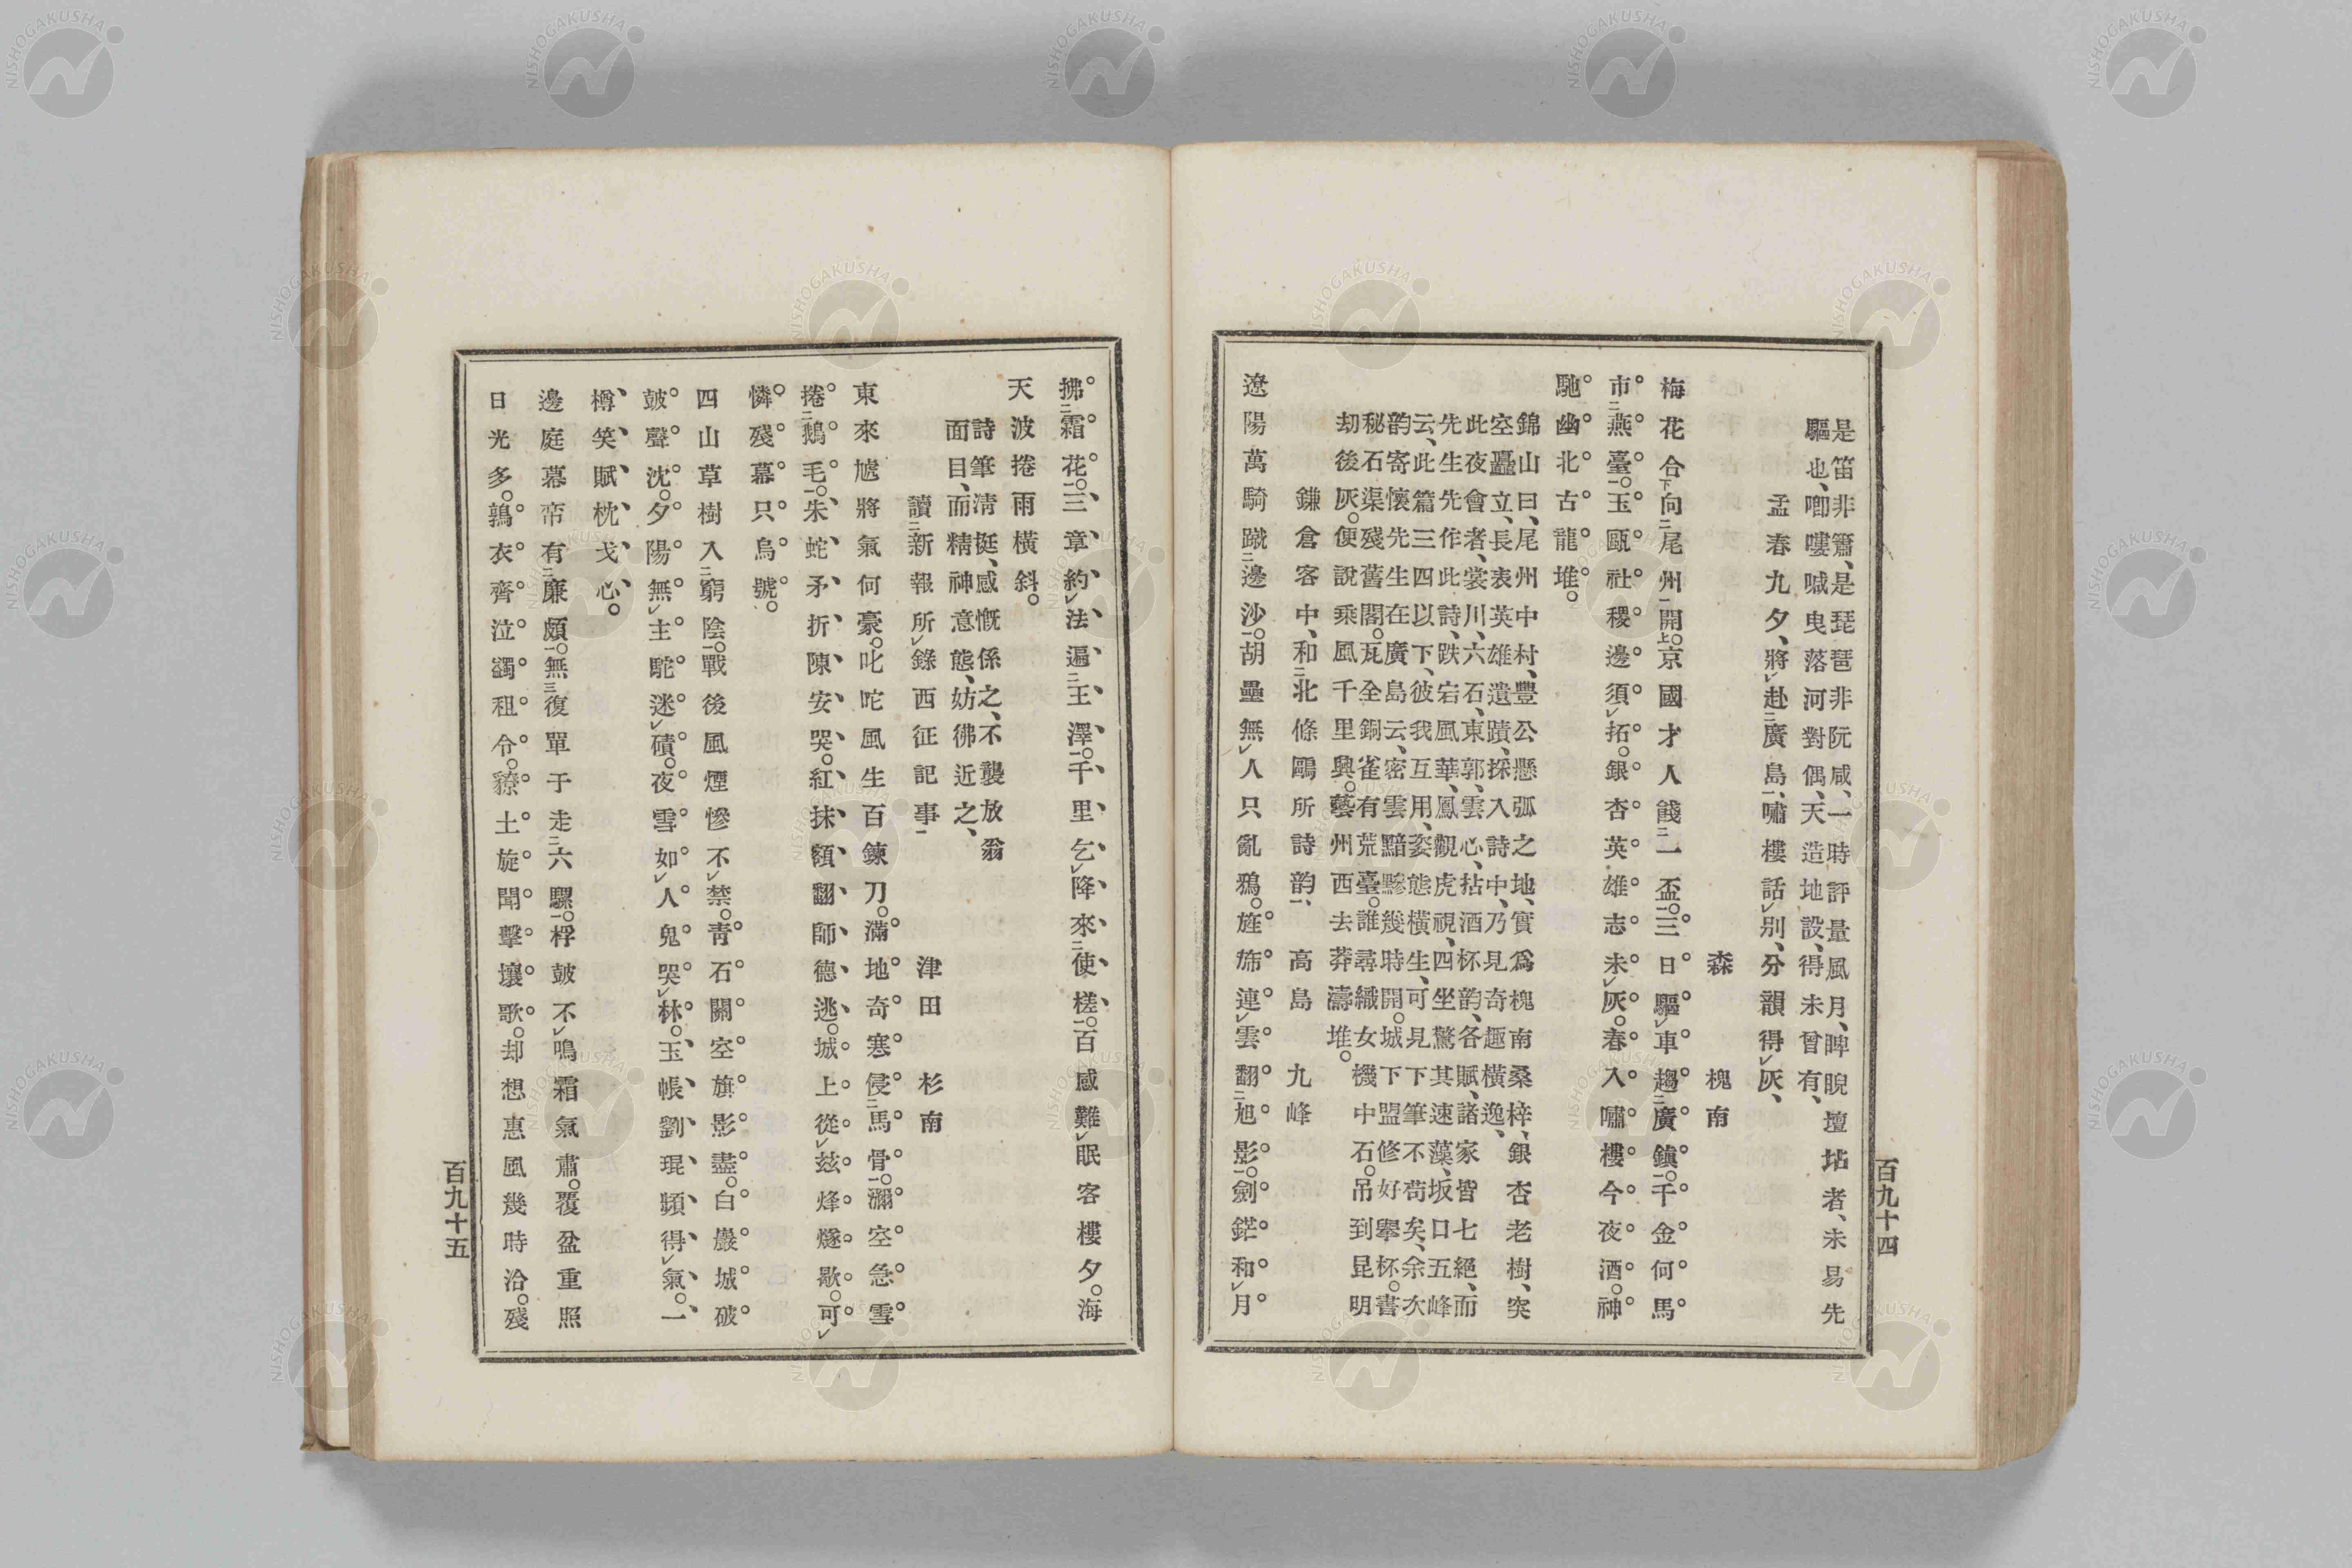 是笛非簫、是琵琶非阮咸、一時評量風月、睥睨壇坫者、未易先
驅也、喞嘍喊曳落河對偶、天造地設、得未曾有、
孟春九夕、將赴廣島、嘯樓話別、分韻得灰、
森 槐南
梅花合向尾州開。京國才人餞一盃。三日驅車趨廣鎮。千金何馬
市燕臺。玉甌社稷邊須拓。銀杏英雄志未灰。春入嘯樓今夜酒。神
馳幽北古龍堆。
錦山曰、尾州中村、豐公懸弧之地、實爲槐南桑梓、銀杏老樹、突
空矗立、長表英雄遺蹟、採入詩中、乃見奇趣橫逸、
此夜會者、裳川、六石、東郭、雲心、拈酒杯韵、各賦諸家皆七絕、而
先生先作此詩、跌宕風華、鳳觀虎視、四坐驚其速藻、坂口五峰
云、此篇三四以下、彼我互用、姿態橫生、可見下筆不苟矣、余次
韵寄懷先生在廣島云、密雲黯黪幾時開。城下盟修好擧杯。書
秘石渠殘舊閣。瓦全銅雀有荒臺。誰尋織女機中石。吊到昆明
劫後灰。便說乘風千里興。藝州西去莽濤堆。
鎌倉客中、和北條鷗所詩韵、 高島 九峰
遼陽萬騎蹴邊沙。胡壘無人只亂鴉。旌旆連雲翻旭影。劍鋩和月
百九十四
拂霜花。三章約法遍王澤。千里乞降來使槎。百感難眠客樓夕。海
天波捲雨橫斜。
詩筆淸挺、感慨係之、不襲放翁
面目、而精神意態、妨彿近之、
讀新報所錄西征記事 津田 杉南
東來虓將氣何豪。叱咤風生百鍊刀。滿地奇寒侵馬骨。瀰空急雪
捲鵝毛。朱蛇矛折陳安哭。紅抹額翻師德逃。城上從玆烽燧歇。可
憐殘幕只烏號。
四山草樹入窮陰。戰後風煙慘不禁。靑石關空旗影盡。白巖城破
皷聲沈。夕陽無主駝迷磧。夜雪如人鬼哭林。玉帳劉琨頻得氣。一
樽笑賦枕戈心。
邊庭幕帟有廉頗。無復單于走六騾。桴皷不鳴霜氣肅。覆盆重照
日光多。鶉衣齊泣蠲租令。獠土旋聞擊壤歌。却想惠風幾時洽。殘
百九十五